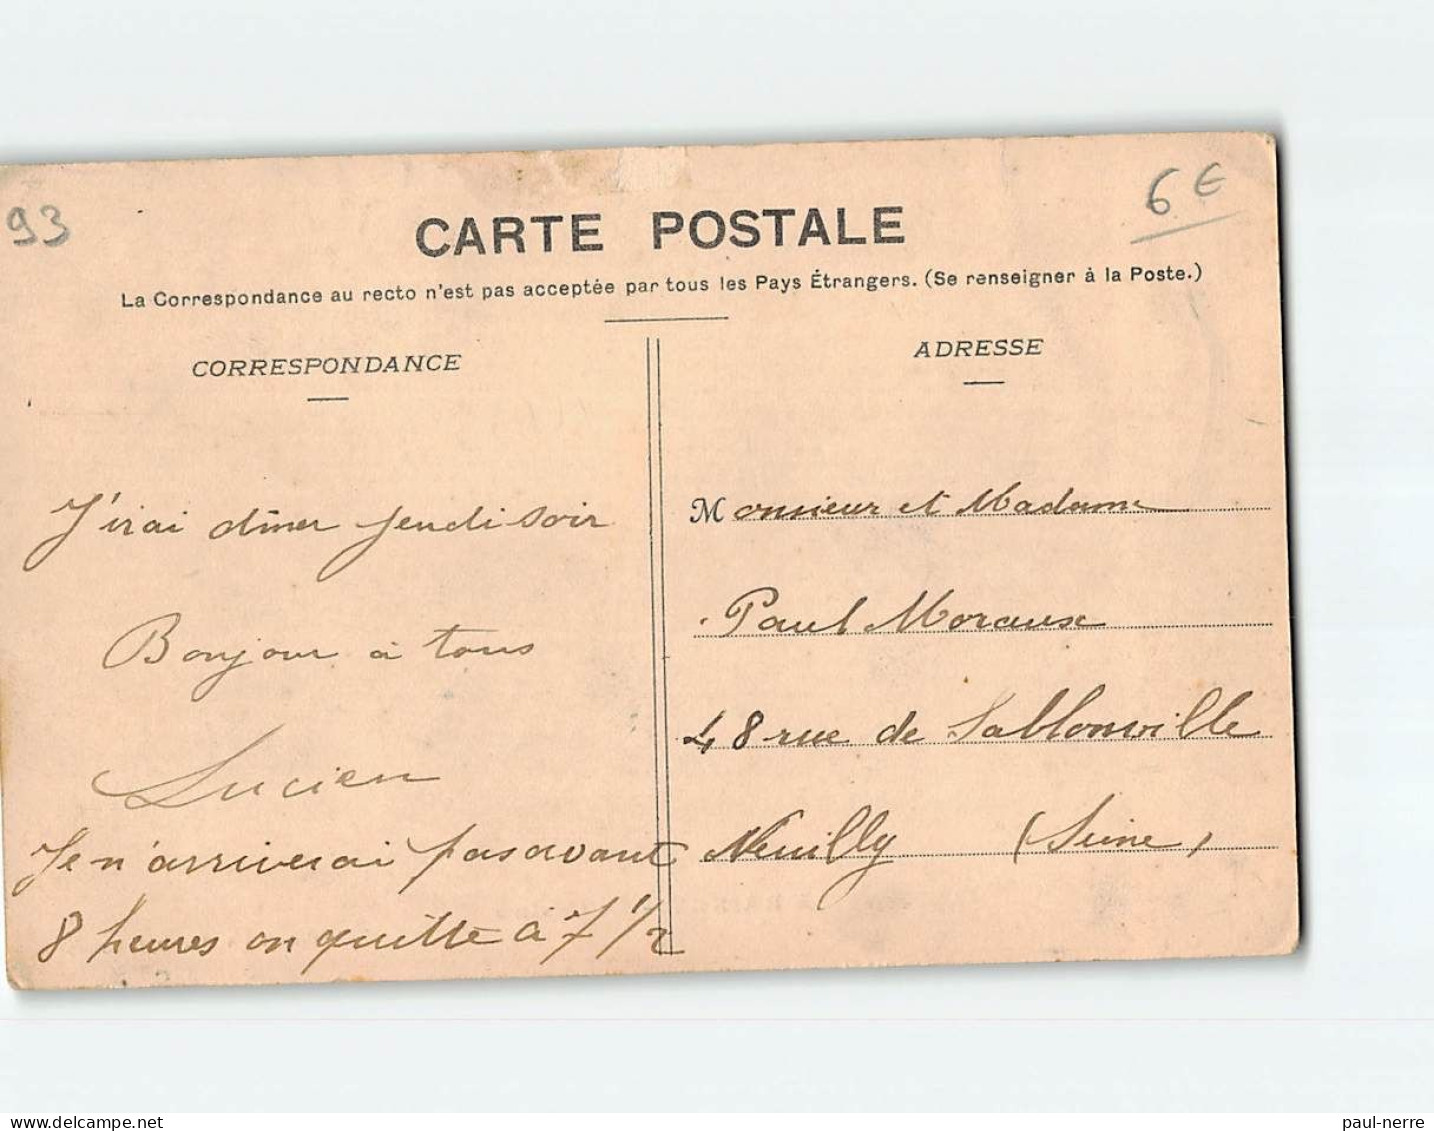 93
6 €
CARTE POSTALE
La Correspondance au recto n'est pas acceptée par tous les Pays Étrangers. (Se renseigner à la Poste.)
CORRESPONDANCE
J'irai dîner jeudi soir
Bonjour à tous
Lucien
Je n'arriverai pas avant
8 heures on quitte à 7 1/2
ADRESSE
Monsieur et Madame
Paul Moraux
48 rue de Sablonville
Neuilly (Seine)
delcampe.net
paul-nerre